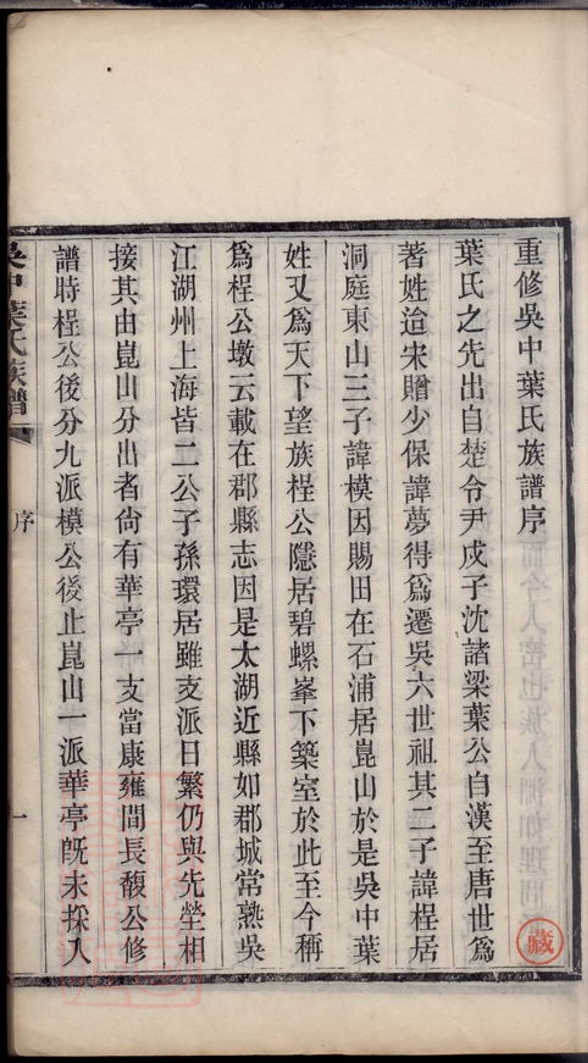 重修吳中葉氏族譜序
葉氏之先出自楚令尹戌子沈諸梁葉公自漢至唐世爲
著姓迨宋贈少保諱夢得爲遷吳六世祖其二子諱桯居
洞庭東山三子諱模因賜田在石浦居崑山於是吳中葉
姓又爲天下望族桯公隱居碧螺峯下築室於此至今稱
爲桯公墩云載在郡縣志因是太湖近縣如郡城常熟吳
江湖州上海皆二公子孫環居雖支派日繁仍與先塋相
接其由崑山分出者尙有華亭一支當康雍間長馥公修
譜時桯公後分九派模公後止崑山一派華亭旣未採入
吳中葉氏族譜
序
一
藏